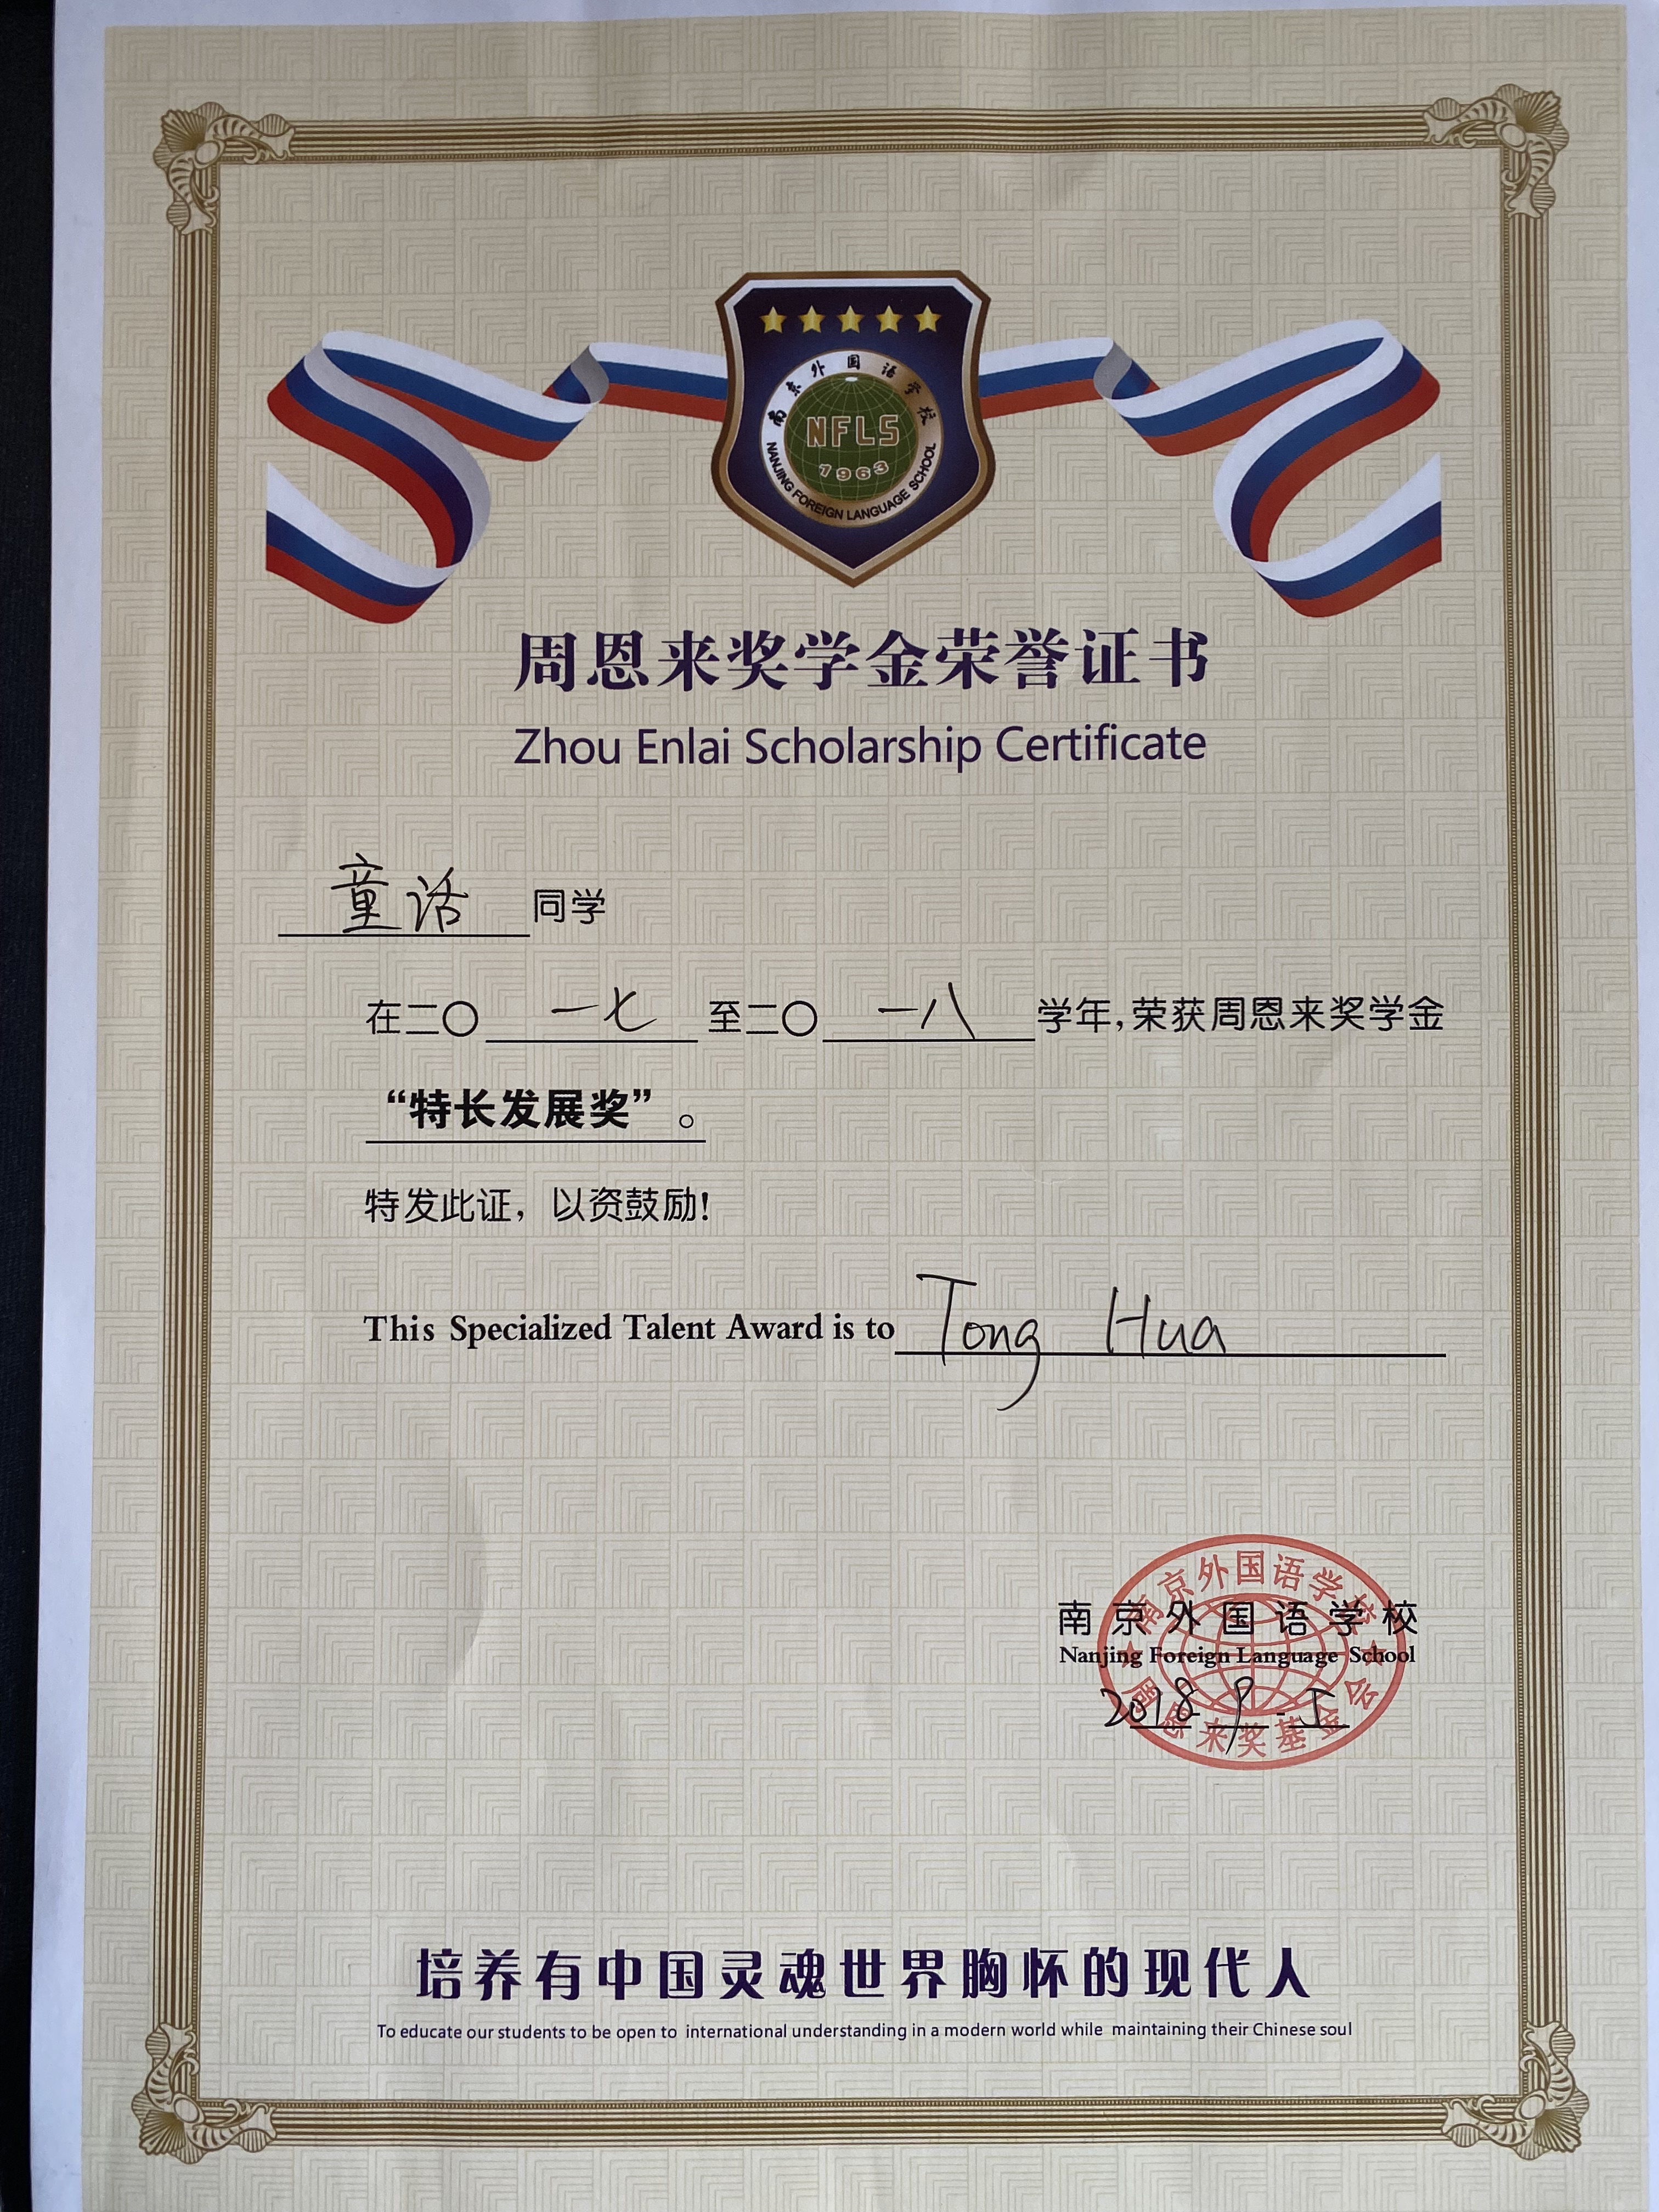 南京外国语学校
NFLS
1963
NANJING FOREIGN LANGUAGE SCHOOL
周恩来奖学金荣誉证书
Zhou Enlai Scholarship Certificate
童话 同学
在二〇 一七 至二〇 一八 学年,荣获周恩来奖学金
“特长发展奖”。
特发此证，以资鼓励!
This Specialized Talent Award is to Tong Hua
南京外国语学校
南京外国语学校
Nanjing Foreign Language School
2018-9-
周恩来奖基金会
培养有中国灵魂世界胸怀的现代人
To educate our students to be open to international understanding in a modern world while maintaining their Chinese soul